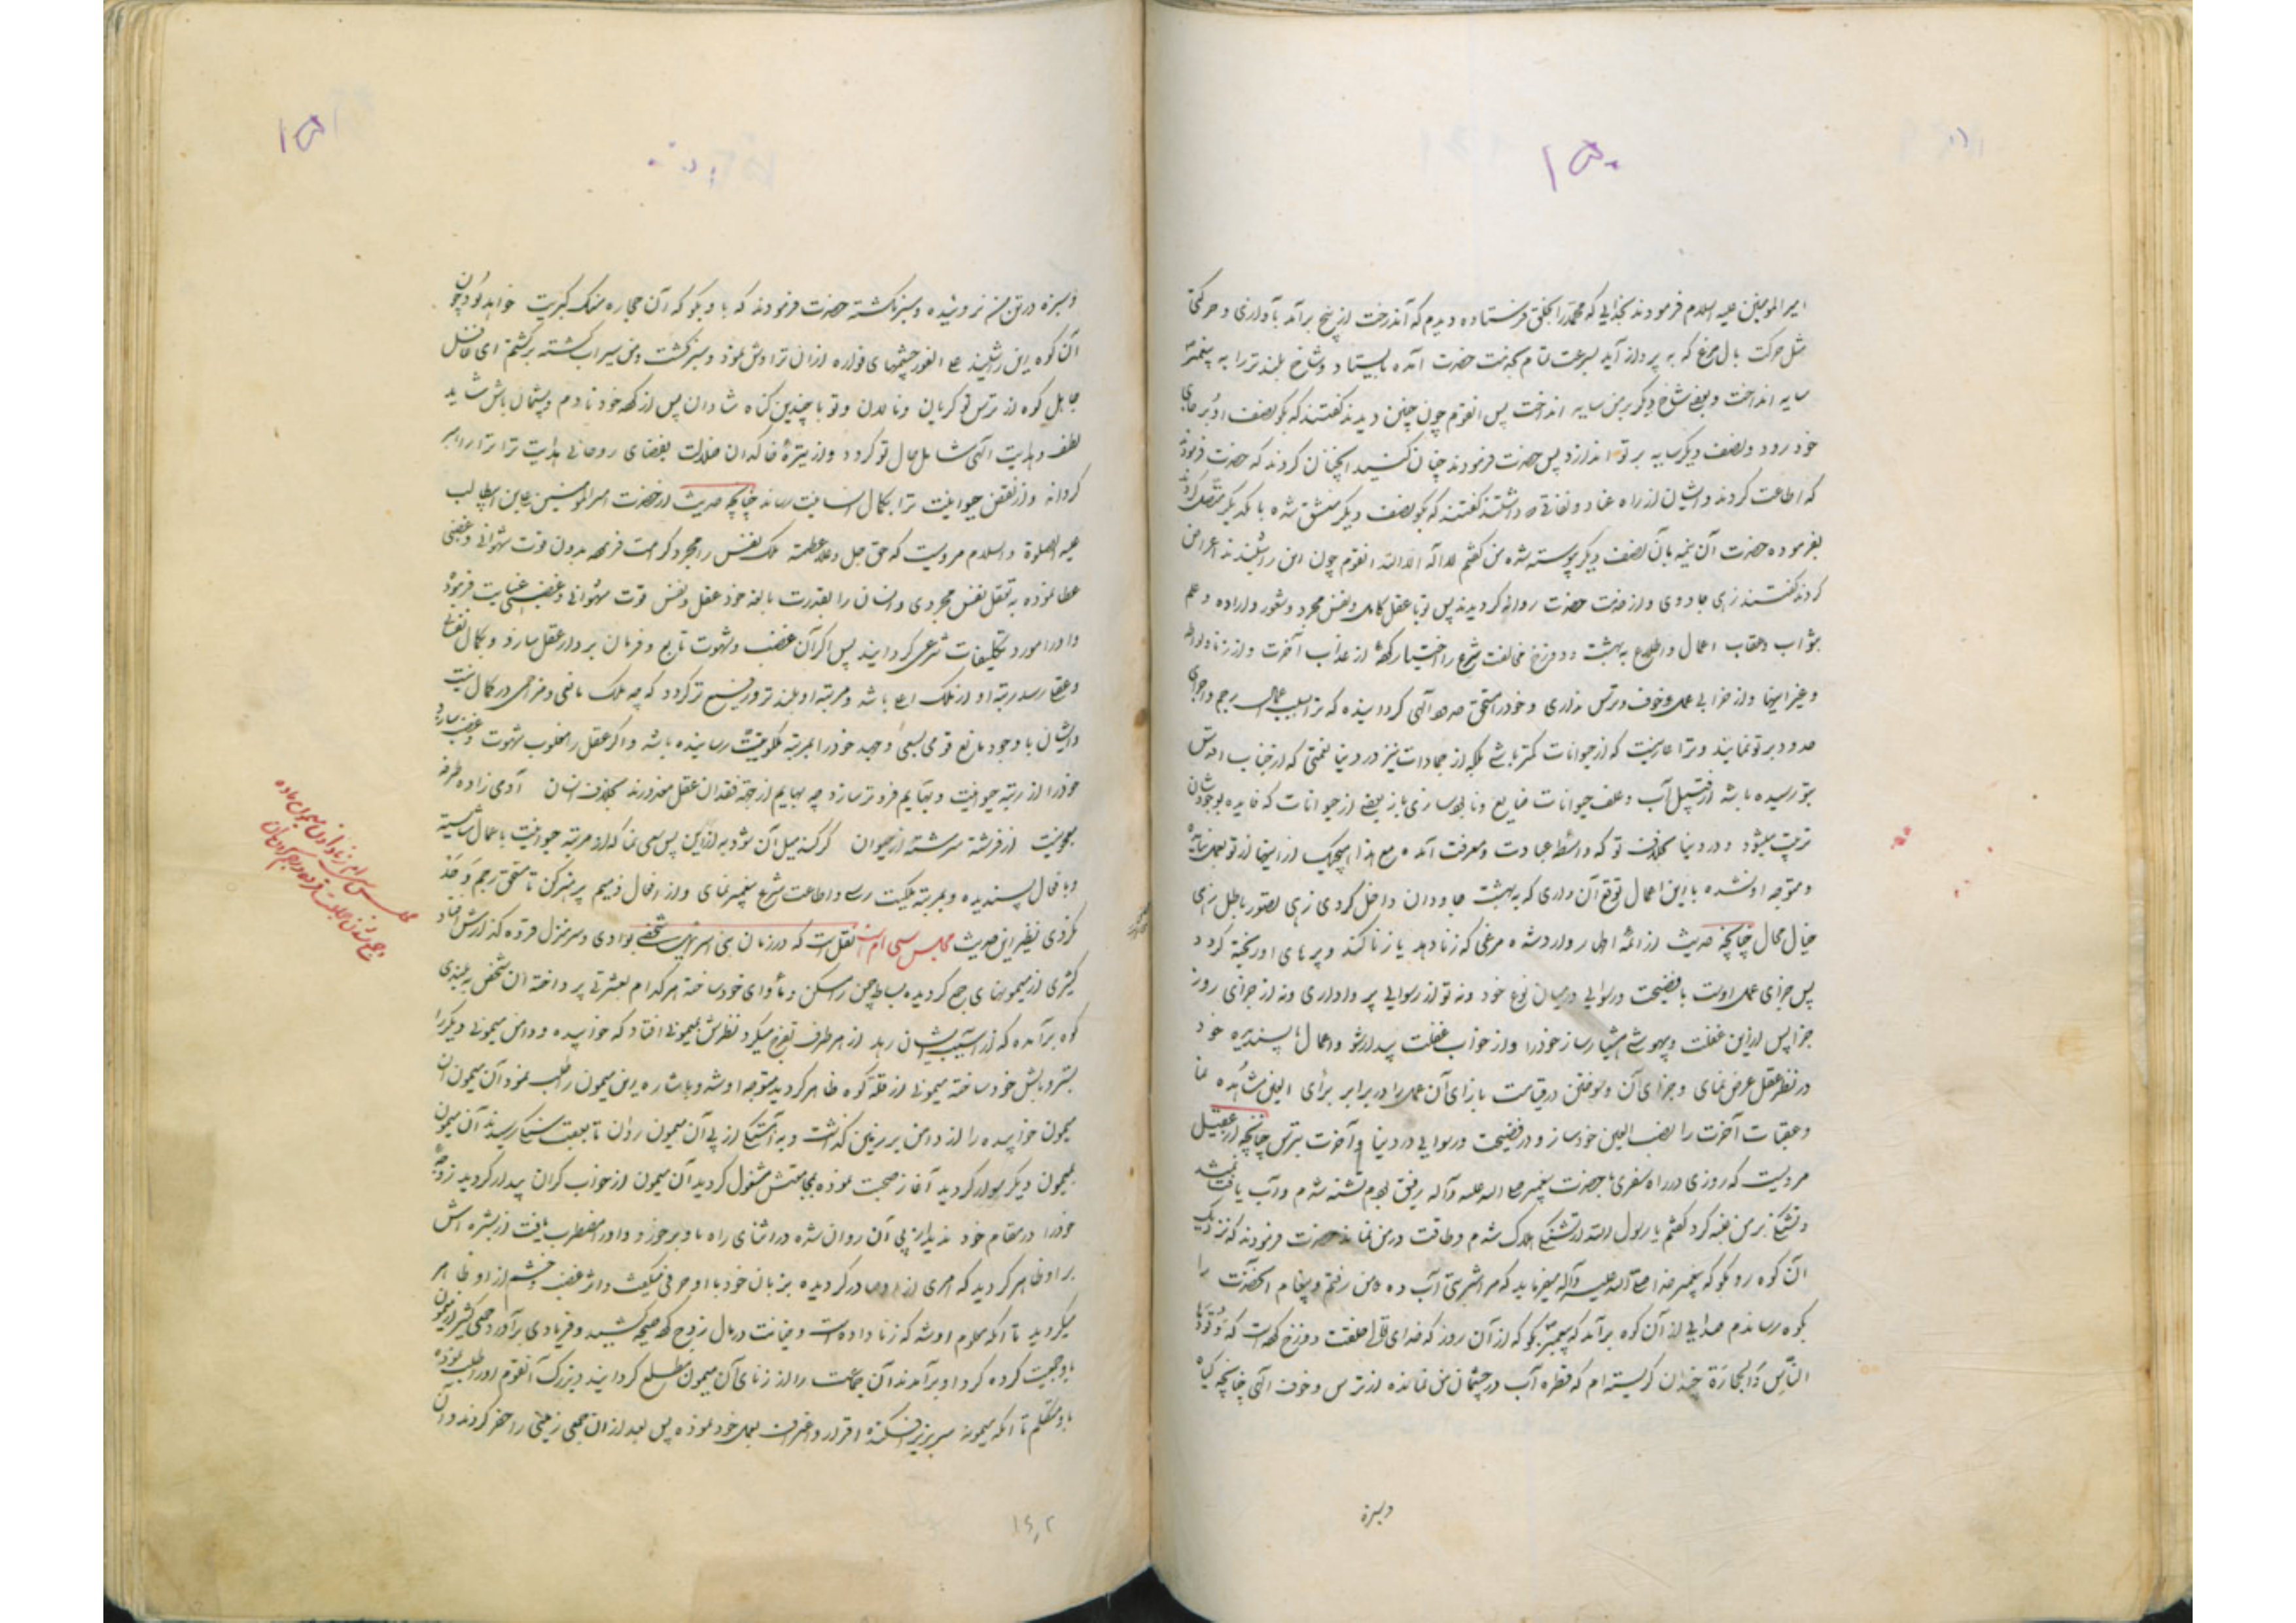 ۱۵۰
امیر المومنین علیه السلام فرمودند بخدایی که محمد را بحق فرستاده دیدم که آندرخت از بیخ برآمد با وازی و حرکتی
مثل حرکت بال مرغ که به پرواز آید بسرعت تمام بخدمت حضرت آمده بایستاد و شاخ بلندتر را به پیغمبر
سایه انداخت و بعضی شاخ دیگر بر من سایه انداخت پس انقوم چون چنین دیدند گفتند که بگو نصف او بر جای
خود رود و نصف دیگر سایه بر تو اندازد پس حضرت فرمودند چنان کنید انچنان کردند که حضرت فرمود
که اطاعت کردند و ایشان از راه عناد و نفاقی که داشتند گفتند که بگو نصف دیگر منشق شده با یکدیگر متصل کردد
بفرموده حضرت آن نیمه بآن نصف دیگر پیوسته شد من گفتم لا اله الا الله انقوم چون این را شنیدند اعراض
کردند گفتند زهی جادوی و از خدمت حضرت روانه کردیدند پس تو با عقل کامل و نفس مجرد و شعور و اراده و علم
بثواب و عقاب اعمال و اطلاع به بهشت و دوزخ مخالفت شرع را اختیار کرده از عذاب آخرت و از زنا و لواطه
و غیر اینها و از خرابی عمل و خوف و ترس نداری و خود را مستحق حد الهی کردانیده که ترا بسبب اعمال رجم و اجرای
حدود بر تو نمایند و ترا عار نیست که از حیوانات کمتر باشی بلکه از جمادات نیز در دنیا نعمتی که از جناب اقدس
بتو رسیده باشد از قبیل آب و علف حیوانات ضایع و نابود سازی باز بعضی از حیوانات که فایده بوجودشان
ترتیب میشود و در دنیا بخلاف تو که واسطه عبادت و معرفت آمده مع هذا هیچیک از اینها از تو بعمل نیامده
و متوجه او نشده با این اعمال توقع آن داری که به بهشت جاودان داخل کردی زهی تصور باطل زهی
خیال محال چنانچه حدیث از ائمه اطهار وارد شده مرغی که زنا دهد یا زنا کند و پرهای او ریخته کردد
پس جزای عمل اوست با فضیحت و رسوایی در میان نوع خود و نه تو از رسوایی پروا داری و نه از جزای روز
جزا پس از این غفلت و بیهوشی هشیار ساز خود را و از خواب غفلت بیدار شو و اعمال ناپسندیده خود
در نظر عقل عرض نمای و جزای آن و سوختن در قیامت بازای آن عمل را در برابر برای العین مشاهده نما
و عقبات آخرت را نصب العین خود ساز و در فضیحت و رسوایی در دنیا و آخرت بترس چنانچه از عقیل
مرویست که روزی در راه سفری با حضرت پیغمبر صلی الله علیه و آله رفیق بودم تشنه شدم و آب یافت نمیشد
و تشنگی بر من غلبه کرد گفتم یا رسول الله از تشنگی هلاک شدم و طاقت در من نماند حضرت فرمودند که نزدیک
آن کوه رو بگو که پیغمبر خدا صلی الله علیه و آله میفرماید که مرا شربتی آب ده من رفتم و پیغام انحضرت را
بکوه رساندم صدایی از آن کوه برآمد که به پیغمبر بگو که از آن روز که خدای تعالی خلقت دوزخ کرده است که وقودها
الناس و الحجارة چندان کریسته ام که قطره آب در چشمان من نمانده از ترس و خوف الهی چنانچه کیاه
وسبزه
۱۵۱
و سبزه در تن من نروئیده و سبز نکشته حضرت فرمودند که باو بگو که آن حجاره سنک کبریت خواهد بود چون
آن کوه این را شنید علی الفور چشمهای فواره از آن تراوش نمود و سبز کشت و من سیراب کشته برگشتم ای غافل
جاهل کوه از ترس تو گریان و نالان و تو با چندین کناه شادان پس از کرده خود نادم و پشیمان باش شاید
لطف و هدایت الهی شامل حال تو کردد و از تیره خاکدان ضلالت بفضای روحانی هدایت ترا راهبر
کرداند و از نقص حیوانیت ترا بکمال انسانیت رساند چنانچه حدیث از حضرت امیر المومنین علی ابن ابیطالب
علیه الصلوة و السلام مرویست که حق جل و علا عظمته ملک نفس را مجرد کرامت فرموده بدون قوت شهوانی و غضبی
عطا نموده به تعقل نفس مجردی و انسان را بقدرت بالغه خود عقل و نفس قوت شهوانی و غضبی عنایت فرمود
و او را مورد تکلیفات شرعی کردانید پس اگر آن غضب و شهوت تابع و فرمان بردار عقل سازد و بکمال نفس
و عقل رسد رتبه او از ملک اعلا باشد و مرتبه او بلندتر و رفیع تر کردد که چه ملک مانعی و مزاحمی در کمال نیست
و ایشان با وجود مانع قومی بسعی و جهد خود را بمرتبه ملکوتیت رسانیده باشد و اگر عقل را مغلوب شهوت و غضب سازد
خود را از رتبه حیوانیت و بهایم فروتر سازد چه بهایم از جهة فقدان عقل معذورند بخلاف انسان آدمی زاده طرفه
معجونیست از فرشته سرشته و ز حیوان گر کند میل آن شود به از این پس سعی نما که از مرتبه حیوانیت باعمال شایسته
و بافعال پسندیده و بمرتبه ملکیت رسی و اطاعت شرع پیغمبر نمای و از افعال ذمیم پرهیز کن تا مستحق رجم و حد
نگردی نظیر این حدیث مجلس سی ام نقل است که در زمان بنی اسرائیل شخصی بوادی و سر منزل قرده گذارش افتاد
کثیری از میمونهای جمع گردیده بساط چمن را مسکن و مأوای خود ساخته هر کدام بعشرتی پرداخته ان شخص به بلندی
کوه برآمده که از آسیب ایشان رهد از هر طرف تفرج میکرد نظرش بمیمونی افتاد که خوابیده و دامن میمونی دیگر را
بستر و بالش خود ساخته میمونی از قله کوه ظاهر گردید متوجه او شد و باشاره این میمون را طلب نمود آن میمون ان
میمون خوابیده را از دامن بر زمین گذاشت و به آهستگی از پی آن میمون روان تا بعقب سنگی رسیدند آن میمون
بمیمون دیگر سوار گردید آغاز صحبت نموده بمجامعتش مشغول گردید آن میمون از خواب گران بیدار گردید زوجه
خود را در مقام خود ندید از پی آن روان شده در اثنای راه باو برخورد و او را مضطرب یافت از بشره اش
بر او ظاهر گردید که امری از او صادر گردیده بزبان خود با او حرفی میگفت و اثر غضب و خشم از او ظاهر
میگردید تا آنکه معلوم او شد که زنا داده است و خیانت در مال زوج کرده صیحه کشید و فریادی برآورد جمعی کثیر از میمون
باو جمعیت کرده گرد او برآمدند آن جماعت را از زنای آن میمون مطلع گردانید و بزرگ آنقوم او را طلب نموده
باو متکلم تا آنکه میمونه سر بزیر افکنده اقرار و اعتراف بعمل خود نموده پس بعد از ان جمعی زمینی را حفر کردند و آن
مجلس سی ام زنا دادن میمون ماده